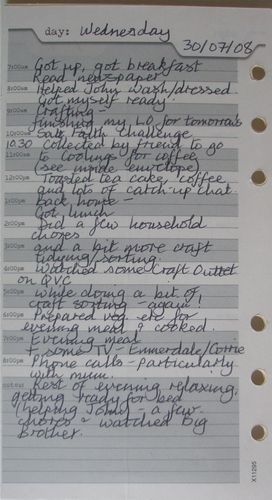 day: Wednesday
30/07/08
7:00am Got up, got breakfast
Read newspaper
8:00am Helped John wash/dressed
Got myself ready
9:00am Crafting -
finishing my LO for tomorrow's
10:00am Sale Faith challenge
10.30 Collected by friend to go
11:00am to Coolings for coffee
(see inside envelope)
12:00pm Toasted tea cake, coffee
and lots of catch-up chat
1:00pm Back home -
Got lunch
2:00pm Did a few household
chores
3:00pm and a bit more craft
tidying/sorting.
4:00pm Watched some Craft Outlet
on QVC
5:00pm while doing a bit of
craft sorting - again!
6:00pm Prepared veg etc for
evening meal & cooked.
7:00pm Evening meal
+ some TV - Emmerdale/Corrie
8:00pm Phone calls - particularly
with mum.
notes: Rest of evening relaxing,
getting ready for bed
(helping John) - a few
chores & watched Big
Brother.
X11295